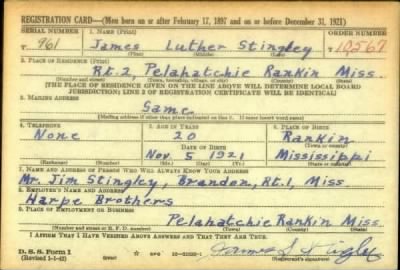 REGISTRATION CARD—(Men born on or after February 17, 1897 and on or before December 31, 1921)
SERIAL NUMBER 1. NAME (Print) ORDER NUMBER
T 961 James Luther Stingley T10,567
(First) (Middle) (Last)
2. PLACE OF RESIDENCE (Print)
Rt. 2, Pelahatchie Rankin Miss.
(Number and street) (Town, township, village, or city) (County) (State)
[THE PLACE OF RESIDENCE GIVEN ON THE LINE ABOVE WILL DETERMINE LOCAL BOARD
JURISDICTION; LINE 2 OF REGISTRATION CERTIFICATE WILL BE IDENTICAL]
3. MAILING ADDRESS
Same
[Mailing address if other than place indicated on line 2. If same insert word same]
4. TELEPHONE 5. AGE IN YEARS 6. PLACE OF BIRTH
None 20 Rankin
DATE OF BIRTH (Town or county)
Nov. 5 1921 Mississippi
(Exchange) (Number) (Mo.) (Day) (Yr.) (State or country)
7. NAME AND ADDRESS OF PERSON WHO WILL ALWAYS KNOW YOUR ADDRESS
Mr. Jim Stingley, Brandon, Rt. 1, Miss
8. EMPLOYER'S NAME AND ADDRESS
Harpe Brothers
9. PLACE OF EMPLOYMENT OR BUSINESS
Pelahatchie Rankin Miss
(Number and street or R. F. D. number) (Town) (County) (State)
I AFFIRM THAT I HAVE VERIFIED ABOVE ANSWERS AND THAT THEY ARE TRUE.
D. S. S. Form 1
(Revised 1-1-42) GPO James L Stingley
(Registrant's signature)